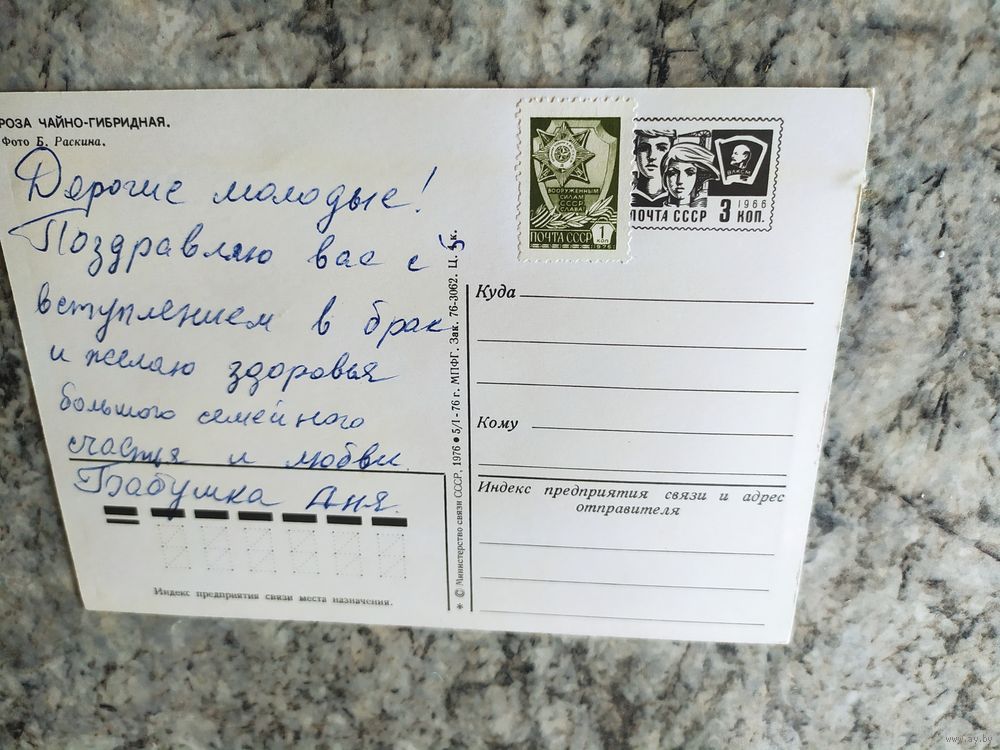 РОЗА ЧАЙНО-ГИБРИДНАЯ.
Фото Б. Раскина.
Дорогие молодые!
Поздравляю вас с
вступлением в брак
и желаю здоровья
большого семейного
счастья и любви.
Бабушка Аня.
Индекс предприятия связи места назначения.
* © Министерство связи СССР, 1976 ● 5/I-76 г. МПФГ. Зак. 76-3062. Ц. 5 к.
ВООРУЖЕННЫМ
СИЛАМ
СССР
СЛАВА
ПОЧТА СССР
1
КОП
1976
ВЛКСМ
ПОЧТА СССР 3 1966
КОП.
Куда
Кому
Индекс предприятия связи и адрес
отправителя
www.ay.by